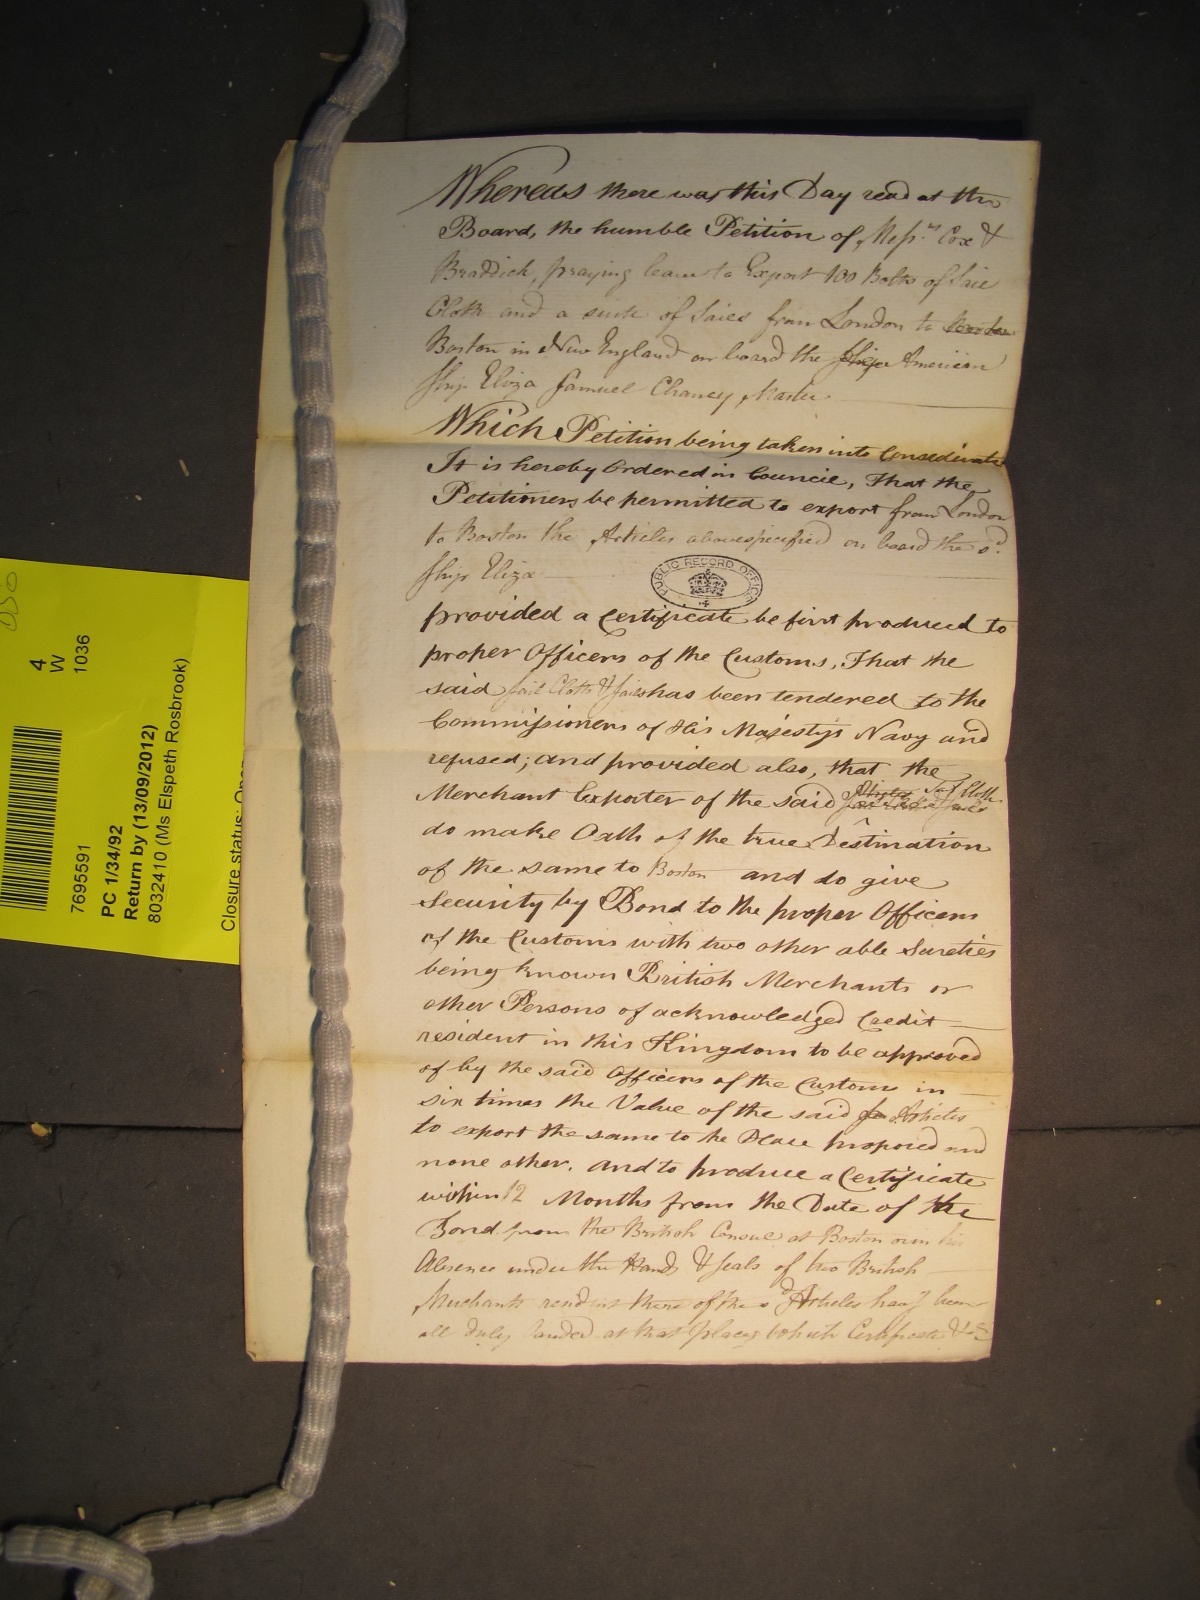 Whereas there was this Day read at the
Board, the humble Petition of Messrs Cox &
Braddick, praying leave to Export 100 Bolts of Sail
Cloth and a suit of Sails from London to
Boston in New England on board the Ship American
Ship Eliza Samuel Chancy Master
Which Petition being taken into Consideration
It is hereby Ordered in Council, That the
Petitioners be permitted to export from London
to Boston the Articles abovespecified on board the sd.
Ship Eliza
PUBLIC RECORD OFFICE
provided a Certificate be first produced to
proper Officers of the Customs, That the
said Sail Cloth & Sails has been tendered to the
Commissioners of His Majestys Navy and
refused; and provided also, that the
Merchant Exporter of the said Articles Sail Cloth
do make Oath of the true Destination
of the same to Boston and do give
Security by Bond to the proper Officers
of the Customs with two other able Sureties
being known British Merchants or
other Persons of acknowledged Credit
resident in this Kingdom to be approved
of by the said Officers of the Customs in
six times the Value of the said Articles
to export the same to the Place proposed and
none other, and to produce a Certificate
within 12 Months from the Date of the
Bond from the British Consul at Boston or in his
Absence under the Hands & Seals of two British
Merchants resident there of the sd Articles havg been
all duly landed at that place, which Certificate &ca
4
W
1036
7695591
PC 1/34/92
Return by (13/09/2012)
8032410 (Ms Elspeth Rosbrook)
Closure status: Open